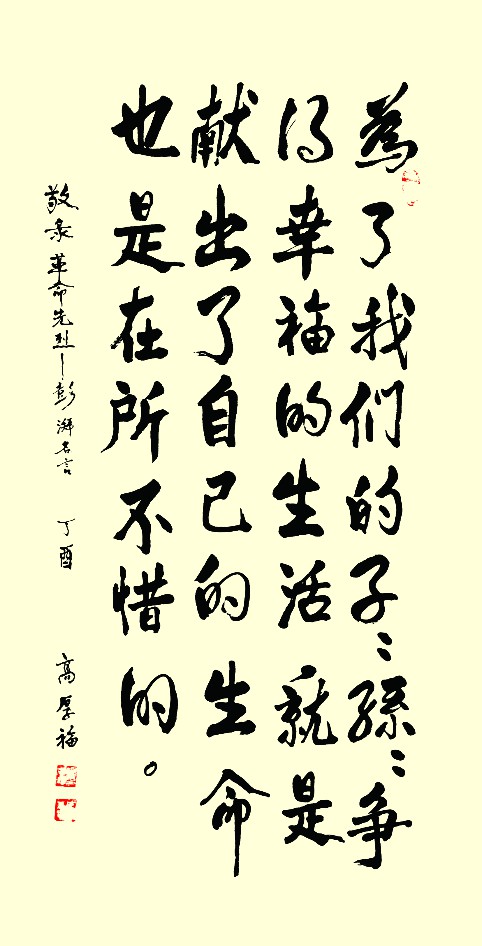 為了我们的子〻孫〻争
得幸福的生活就是
献出了自己的生命
也是在所不惜的。
敬录革命先烈—彭湃名言 丁酉 高厚福